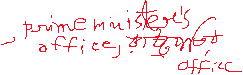 prime minister's
office,
office